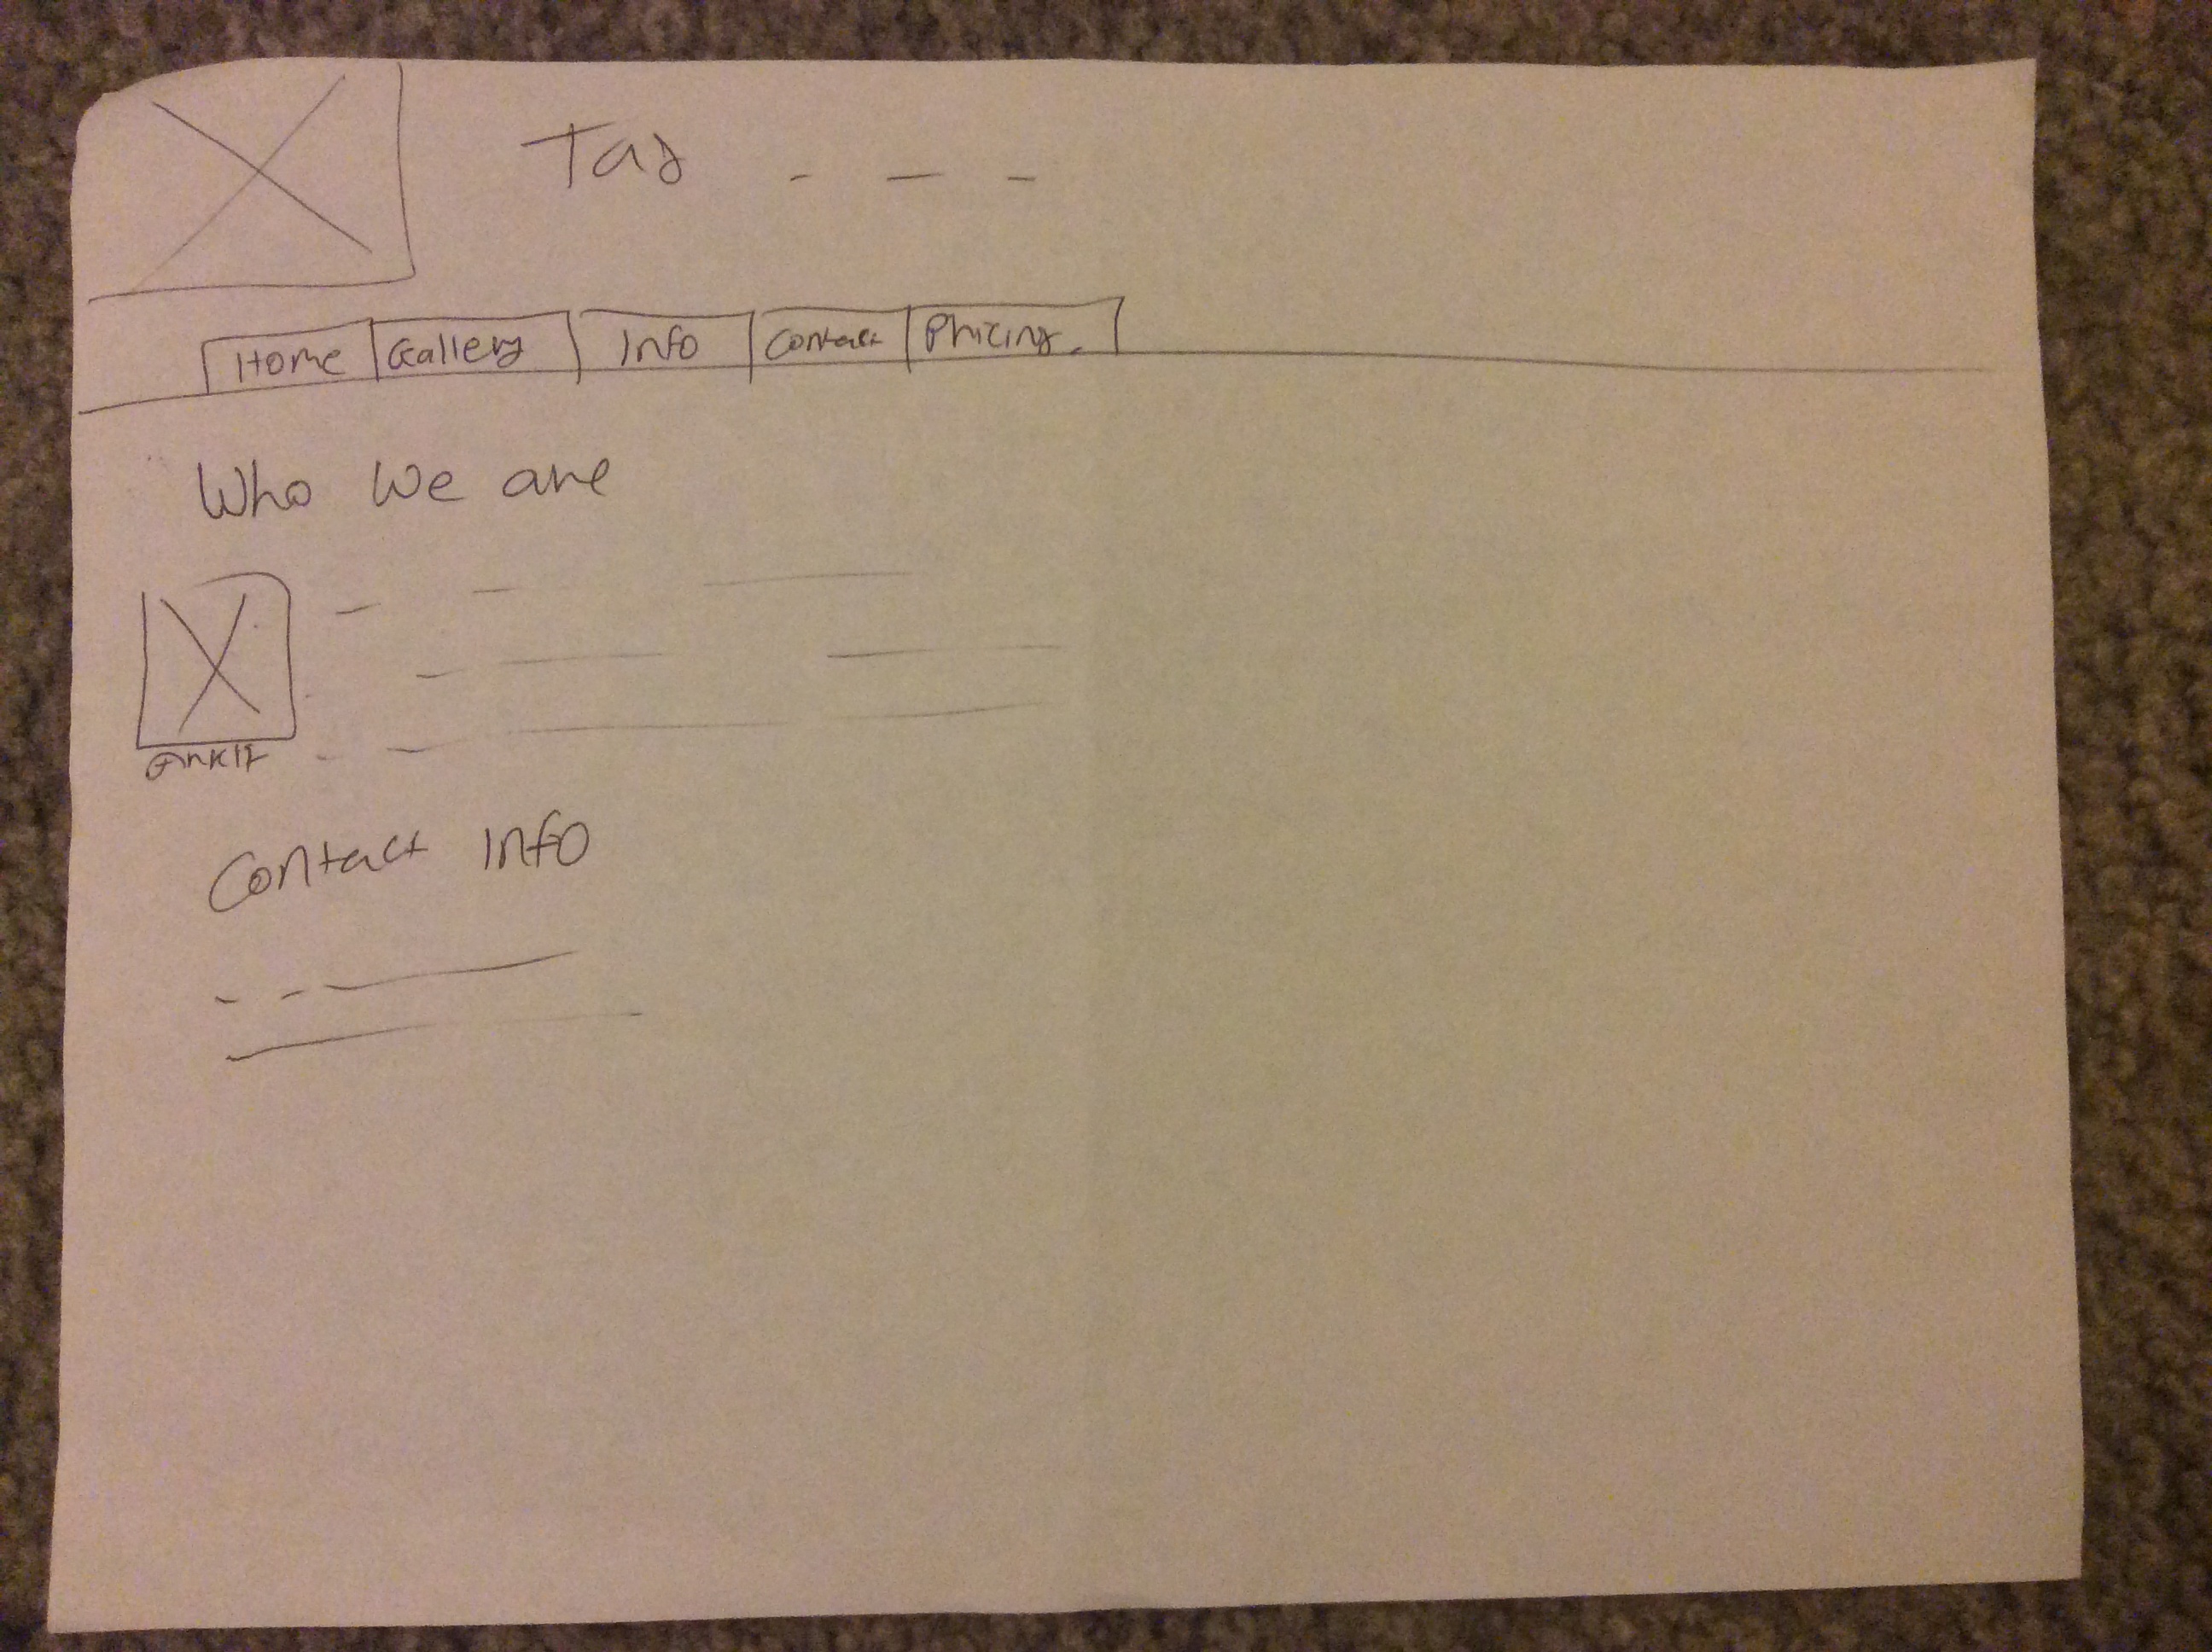 Home Gallery Info Contact Pricing
Who we are
Contact Info